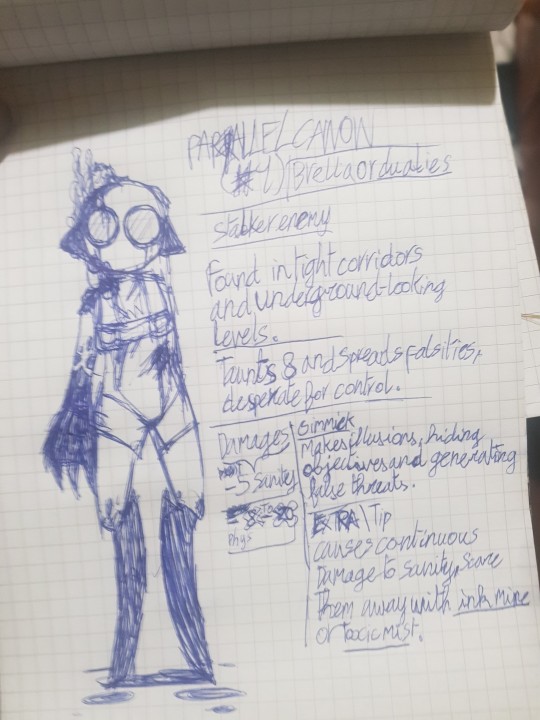 PARALLEL CANON
(#1) Brella or dualies
stalker enemy
Found in tight corridors
and underground-looking
levels.
Taunts & and spreads falsities,
desperate for control.
Damages
-5 Sanity
Phys
Gimmick
Makes illusions, hiding
objectives and generating
false threats.
EXTRA \ Tip
causes continuous
Damage to sanity, scare
them away with ink mine
or toxic mist.